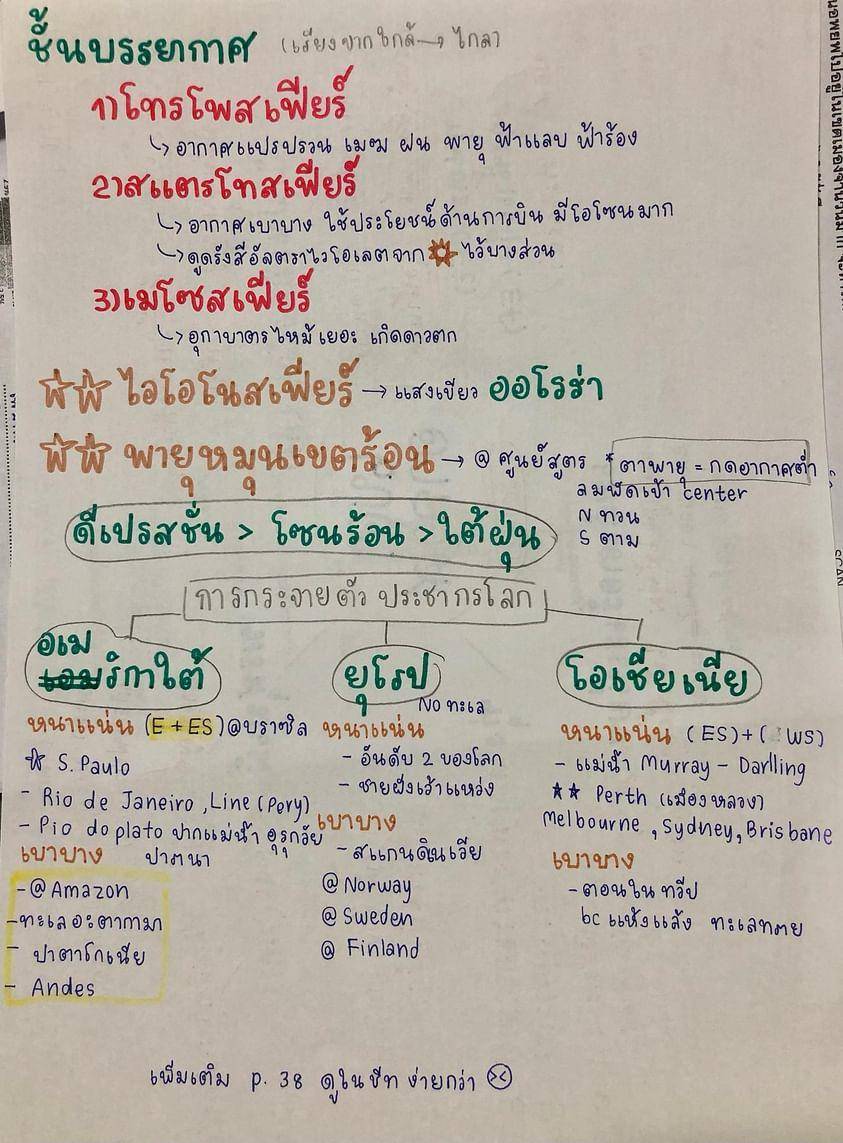 ชั้นบรรยากาศ (เรียงจากใกล้→ไกล)
1)โทรโพสเฟียร์
↳อากาศแปรปรวน เมฆ ฝน พายุ ฟ้าแลบ ฟ้าร้อง
2)สแตรโทสเฟียร์
↳อากาศเบาบาง ใช้ประโยชน์ด้านการบิน มีโอโซนมาก
↳ดูดรังสีอัลตราไวโอเลตจาก ไว้บางส่วน
3)เมโซสเฟียร์
↳อุกาบาตรไหม้เยอะ เกิดดาวตก
☆☆ ไอโอโนสเฟียร์ → แสงเขียว ออโรร่า
☆☆ พายุหมุนเขตร้อน → @ ศูนย์สูตร * ตาพายุ = กดอากาศต่ำ
ลมพัดเข้า center
N ทวน
S ตาม
ดีเปรสชั่น > โซนร้อน > ใต้ฝุ่น
การกระจายตัว ประชากรโลก
อเม
ริกาใต้
หนาแน่น (E + ES)@บราซิล
☆ S. Paulo
- Rio de Janeiro, Line (Pery)
- Pio do plato ปากแม่น้ำ อุรุกวัย
ปานา
เบาบาง
-@Amazon
-ทะเลอะตากามา
- ปาตาโกเนีย
- Andes
ยุโรป
No ทะเล
หนาแน่น
- อันดับ 2 ของโลก
- ชายฝั่งเว้าแหว่ง
เบาบาง
- สแกนดิเนเวีย
@Norway
@Sweden
@ Finland
โอเชียเนีย
หนาแน่น (ES)+( WS)
- แม่น้ำ Murray - Darlling
★★ Perth (เมืองหลวง)
Melbourne, Sydney, Brisbane
เบาบาง
-ตอนในทวีป
bc แห้งแล้ง ทะเลทราย
เพิ่มเติม p. 38 ดูในชีทง่ายกว่า